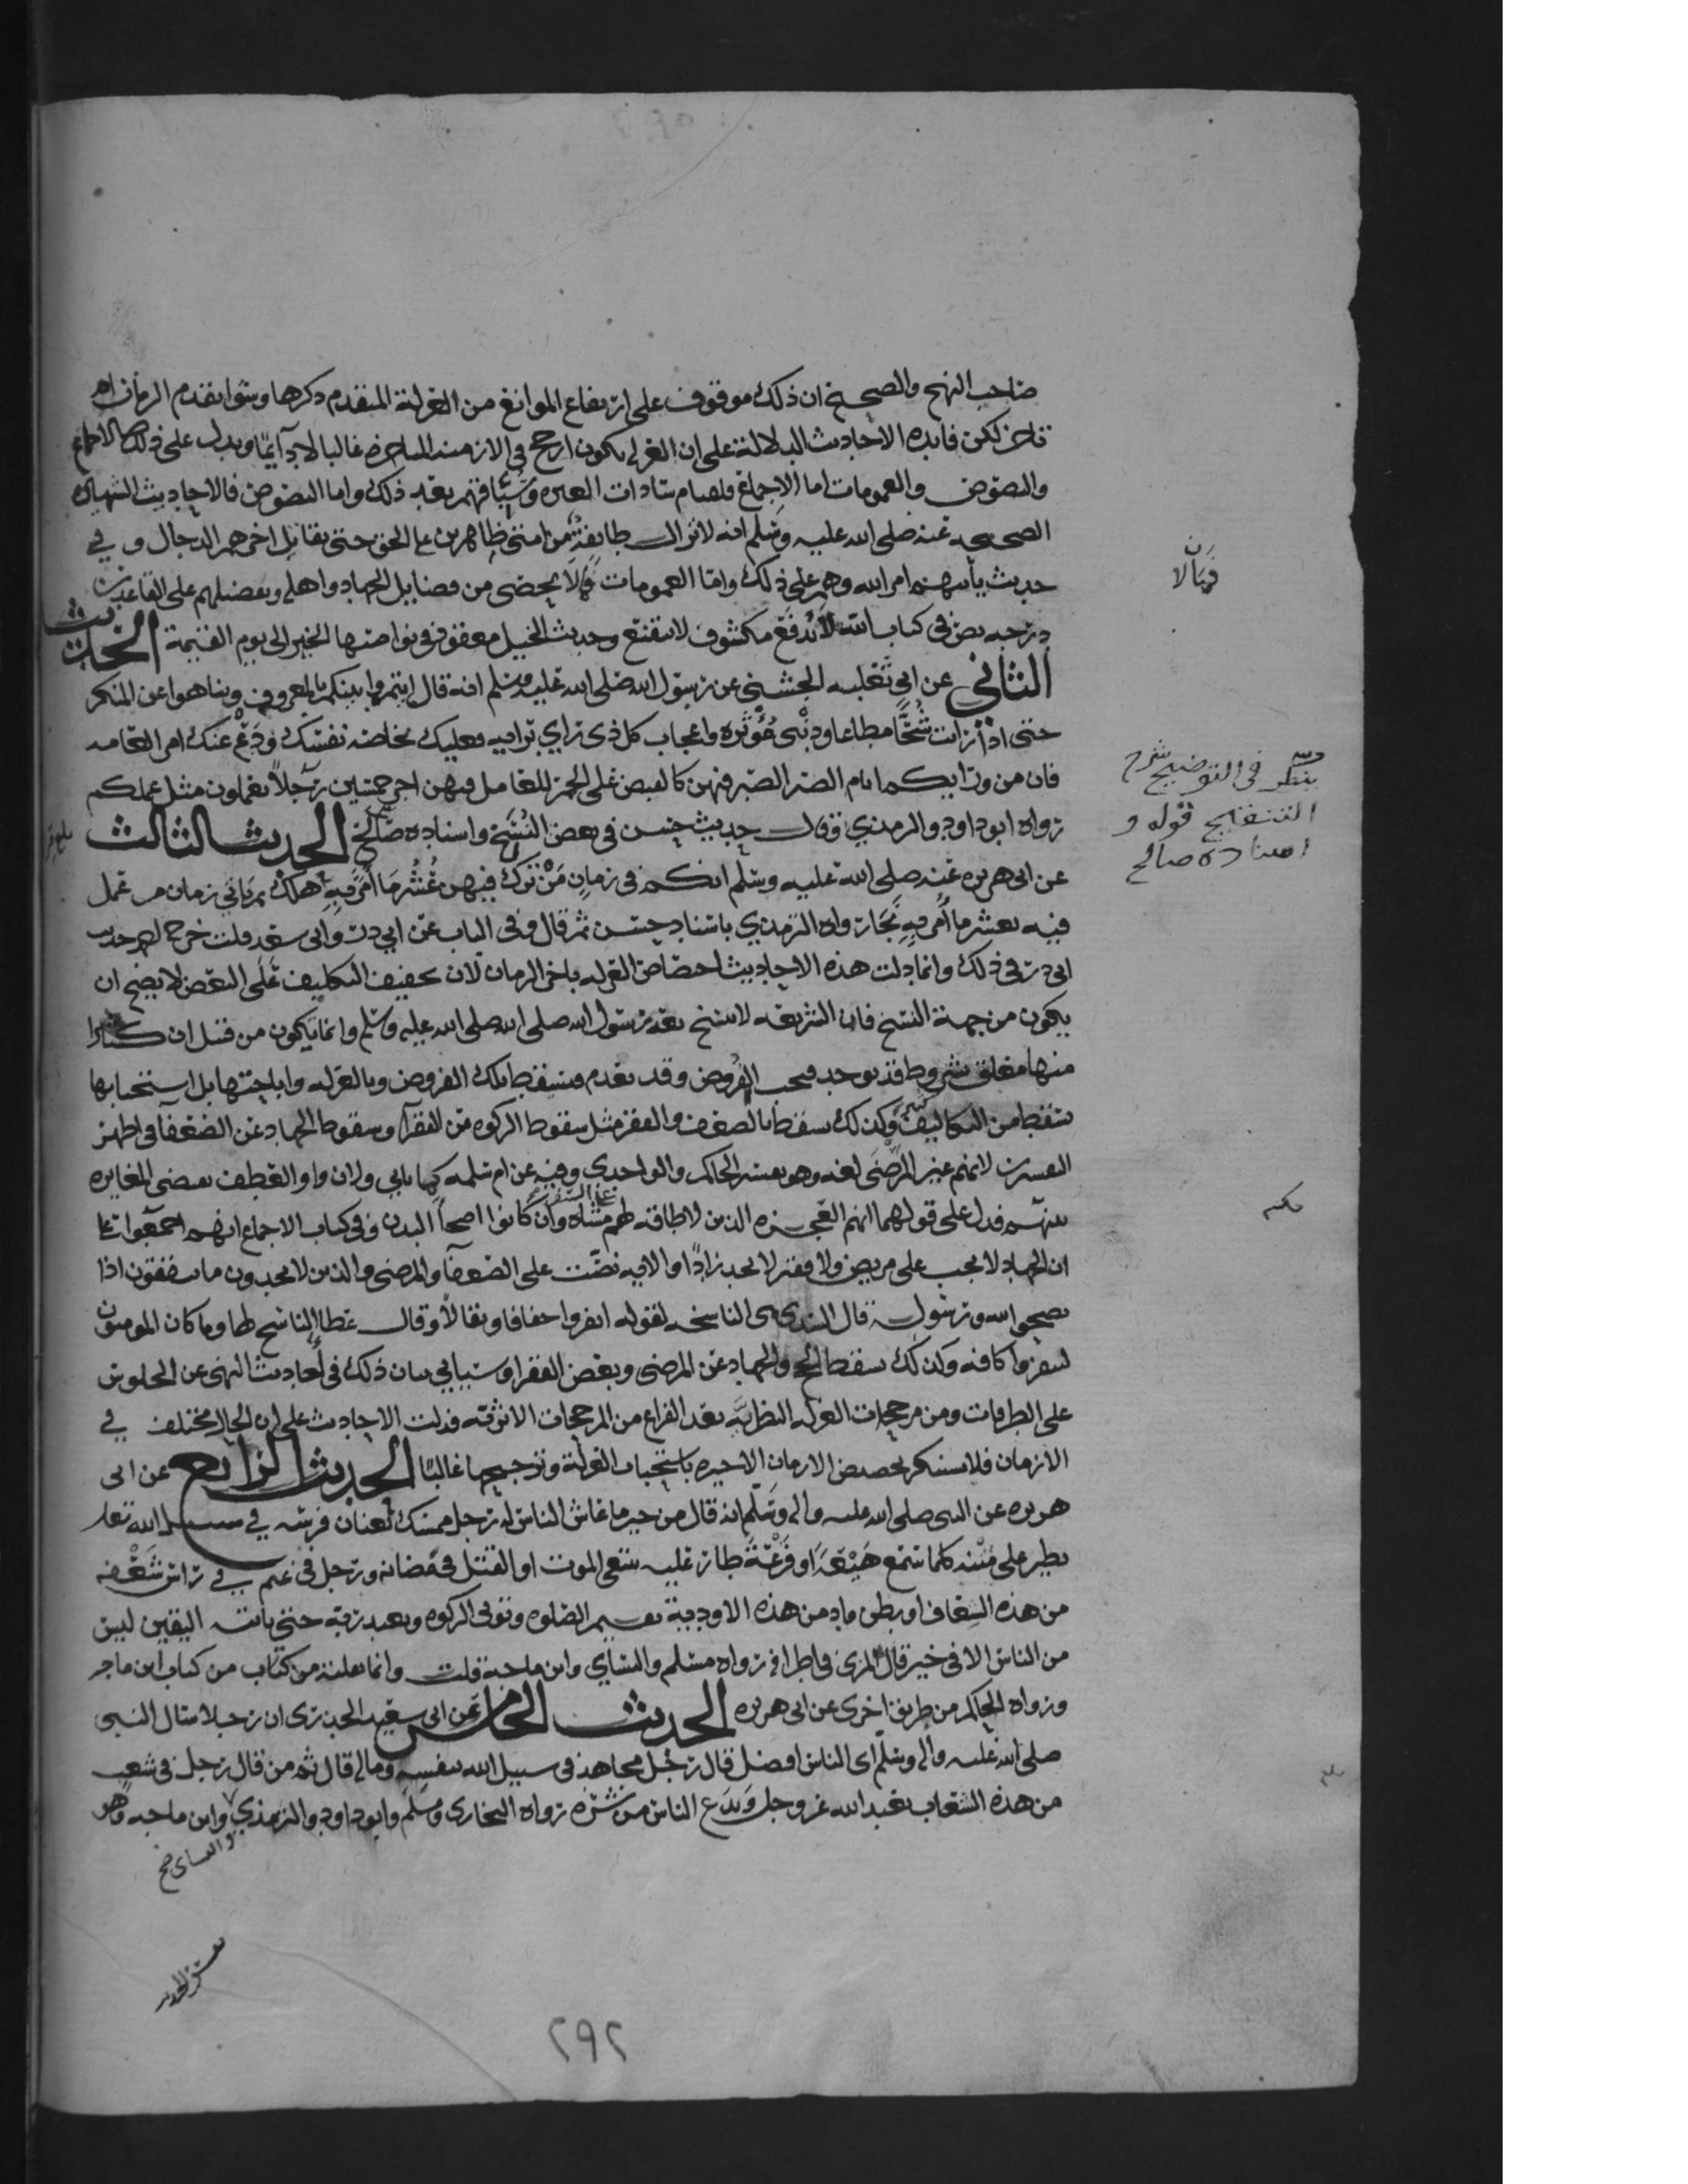 صاحب النهج والصحيح ان ذلك موقوف على ارتفاع الموانع من العزلة المتقدم ذكرها وسوا تقدم الزمان او
تاخر لكن فايده الاحاديث الدلالة على ان العزله يكون ارجح في الازمنه المتاخره غالبا لا دآئما ويدل على ذلك الاجماع
والنصوص والعمومات اما الاجماع فلصيام سادات العتره وشيعتهم بعد ذلك واما النصوص فالاحاديث الشهيره
الصحيحه عنه صلى الله عليه وسلم انه لا تزال طايفة من امتي ظاهرين على الحق حتى يقاتل اخرهم الدجال وفي
حديث ياتيهم امر الله وهم على ذلك واما العمومات فما لا يحصى من فضايل الجهاد واهله وتفضيلهم على القاعدين
درجه نص في كتاب الله لا تدفع مكشوف لا يتقنع وحديث الخيل معقود في نواصيها الخير الى يوم القيمة الحديث
الثاني عن ابي ثعلبه الخشني عن رسول الله صلى الله عليه وسلم انه قال ايتمروا بينكم بالمعروف وتناهوا عن المنكر
حتى اذا رايت شحًّا مطاعا ودنيى مؤثره واعجاب كل ذي راي برايه فعليك بخاصه نفسك ودع عنك امر العامه
فان من ورايكم ايام الصبر الصبر فيهن كالقبض على الجمر للعامل فيهن اجر خمسين رجلا يعملون مثل عملكم
رواه ابو داود والترمذي وقال حديث حسن في بعض النسخ واسناده صالح الحديث الثالث
عن ابي هريره عنه صلى الله عليه وسلم انكم في زمان من ترك فيهن عشر ما امر به هلك ثم ياتي زمان من عمل
فيه بعشر ما امر به نجا رواه الترمذي باسناد حسن ثم قال وفي الباب عن ابي ذر وابي سعيد قلت خرج احمد حديث
ابي ذر في ذلك وانما دلت هذه الاحاديث اختصاص العزله باخر الزمان لان تخفيف التكليف على البعض لا يصح ان
يكون من جهة النسخ فان الشريعه لا تنسخ بعد رسول الله صلى الله صلى الله عليه وسلم وانما يكون من قبل ان كثيرا
منها معلق بشروط قد توجد فتجب الفروض وقد تعدم فتسقط تلك الفروض وبالعزله واباحتها بل استحبابها
تسقط من التكاليف كثير وكذلك تسقط بالضعف والفقر مثل سقوط الزكوه عن الفقرآ وسقوط الجهاد عن الضعفآ في اظهر
التفسيرين لانهم غير المرضى لغه وهو تفسير الحاكم والواحدي وفيه عن ام سلمه كما ياتي ولان واو العطف تقتضي المغايره
بينهم فدل على قولهما انهم العجزه الذين لا طاقه لهم على السفر مشاة وان كانوا اصحآ البدن وفي كتاب الاجماع انهم اجمعوا على
ان الجهاد لا يجب على مريض ولا فقير لا يجد زادًا والايه نصت على الضعفآ والمرضى والذين لا يجدون ما ينفقون اذا
نصحوا لله ورسوله قال السدي هي الناسخه لقوله انفروا خفافا وثقالا وقال عطا الناسخ لها وما كان المومنون
لينفروا كافه وكذلك سقط الحج والجهاد عن المرضى وبعض الفقرا وسياتي بيان ذلك في احاديث النهي عن الجلوس
على الطرقات ومن مرجحات العزله النظريه بعد الفراغ من المرجحات الاثريه فدلت الاحاديث على ان الحال مختلف في
الازمان فلا يستنكر تخصيص الازمان الاخيره باستحباب العزلة وترجيحها غالبًا الحديث الرابع عن ابي
هريره عن النبي صلى الله عليه واله وسلم انه قال من خير ما عاش الناس له رجل ممسك لعنان فرسه في سبيل الله تعالى
يطير على متنه كلما سمع هَيْعَةً او فَزْعَةً طار عليه يبتغي الموت او القتل في مضانه ورجل في غنم في راس شَعَفه
من هذه الشعاف او بطن واد من هذه الاودية يقيم الصلوه ويؤتي الزكوه ويعبد ربه حتى ياتيه اليقين ليس
من الناس الا في خير قال المزي في اطرافه رواه مسلم والنساي وابن ماجه قلت وانما نقلته من كتاب من كتاب ابن ماجه
ورواه الحاكم من طريق اخرى عن ابي هريره الحديث الخامس عن ابي سعيد الخدري ان رجلا سال النبي
صلى الله عليه واله وسلم اي الناس افضل قال رجل مجاهد في سبيل الله بنفسه وماله قال ثم من قال رجل في شعب
من هذه الشعاب يعبد الله عز وجل ويدع الناس من شره رواه البخاري ومسلم وابو داود والترمذي وابن ماجه وهو
والنساي صح
ينظر في التوضيح شرح
التنقيح قوله و
اسناده صالح
٢٩٢